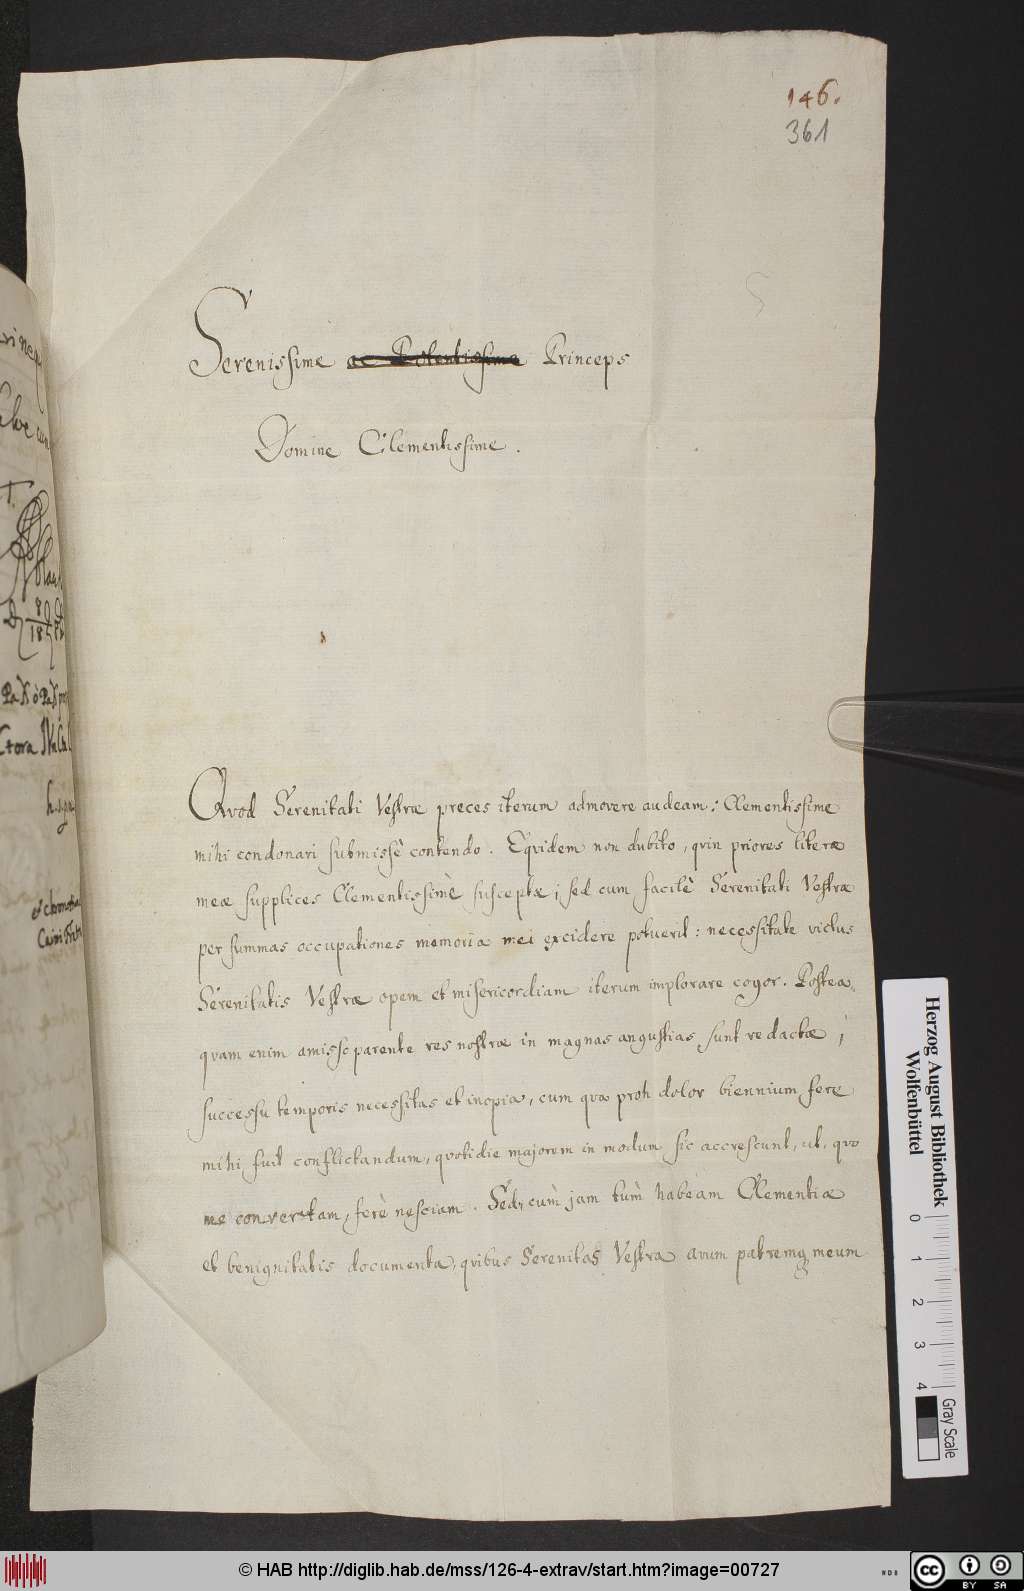 146.
361
Serenissime ac Potentissime Princeps
Domine Clementissime.
Qvod Serenitati Vestræ preces iterum admovere audeam: Clementissime
mihi condonari submissè contendo. Eqvidem non dubito, qvin priores literæ
meæ supplices Clementissimè susceptæ; sed cum facilè Serenitati Vestræ
per summas occupationes memoria mei excidere potuerit: necessitate victus
Serenitatis Vestræ opem et misericordiam iterum implorare cogor. Postea-
qvam enim amisso parente res nostræ in magnas angustias sunt redactæ;
successu temporis necessitas et inopia, cum qva proh dolor biennium fere
mihi fuit conflictandum, qvotidie majorem in modum sic accrescunt, ut, qvo
me convertam, ferè nesciam. Sed, cùm jam tùm habeam Clementiæ
et benignitatis documenta, qvibus Serenitas Vestra avum patremq meum
Herzog August Bibliothek
Wolfenbüttel
0 1 2 3 4
Gray Scale
© HAB http://diglib.hab.de/mss/126-4-extrav/start.htm?image=00727
cc BY SA